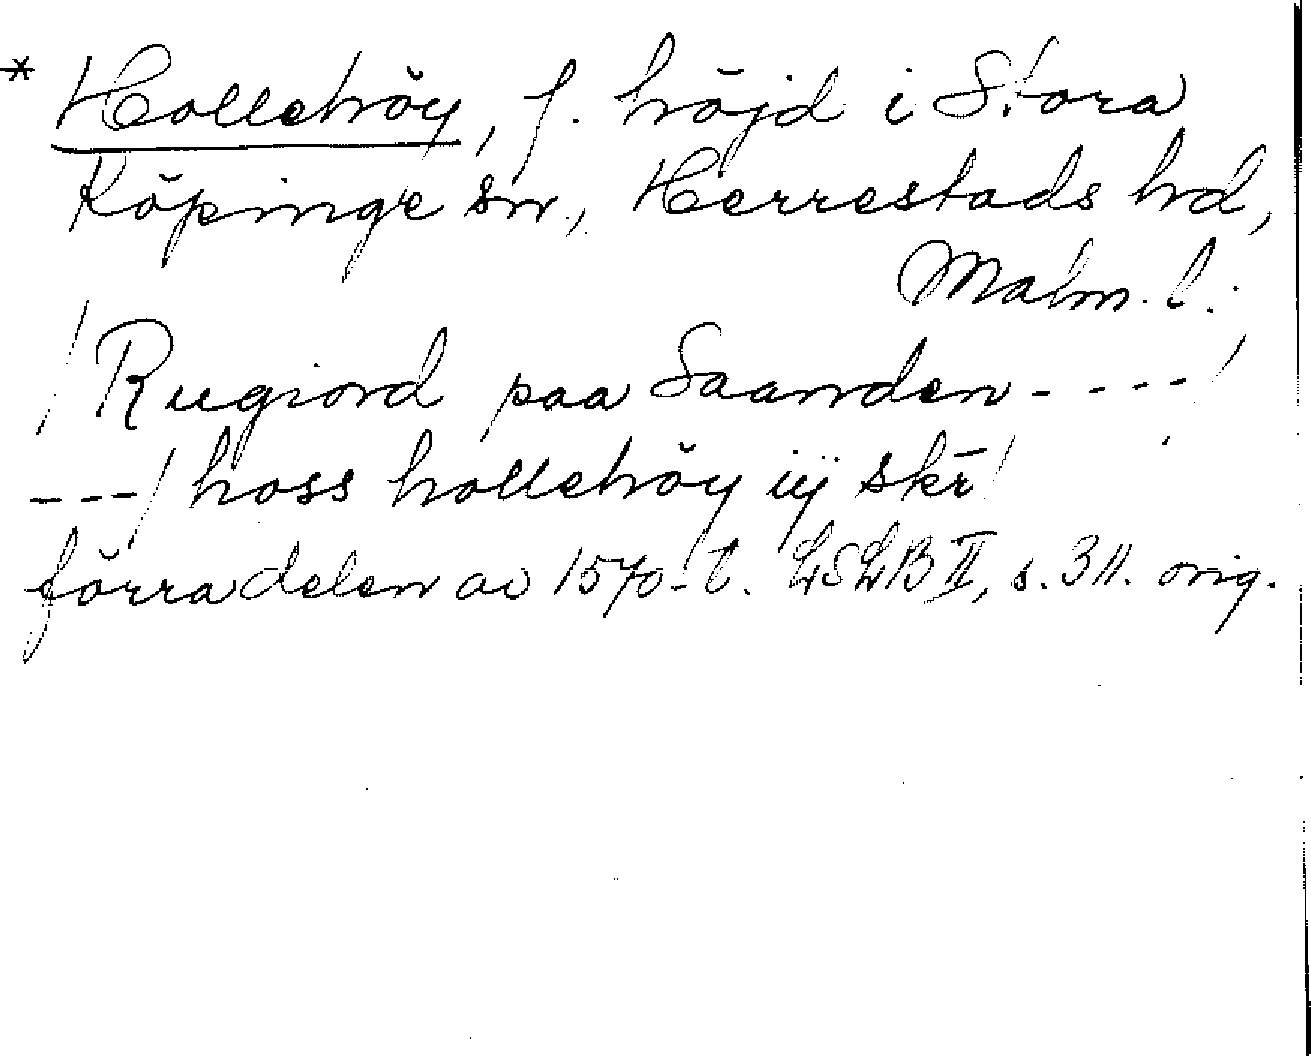 * Hollehöy, f. höjd i Stora
Köpinge sn., Herrestads hd,
Malm. l.
/Rugiord paa Saanden - - - -/
- - -/ hoss hollehöy iij skr̄/
förra delen av 1570-t. LSLB II, s. 311. orig.